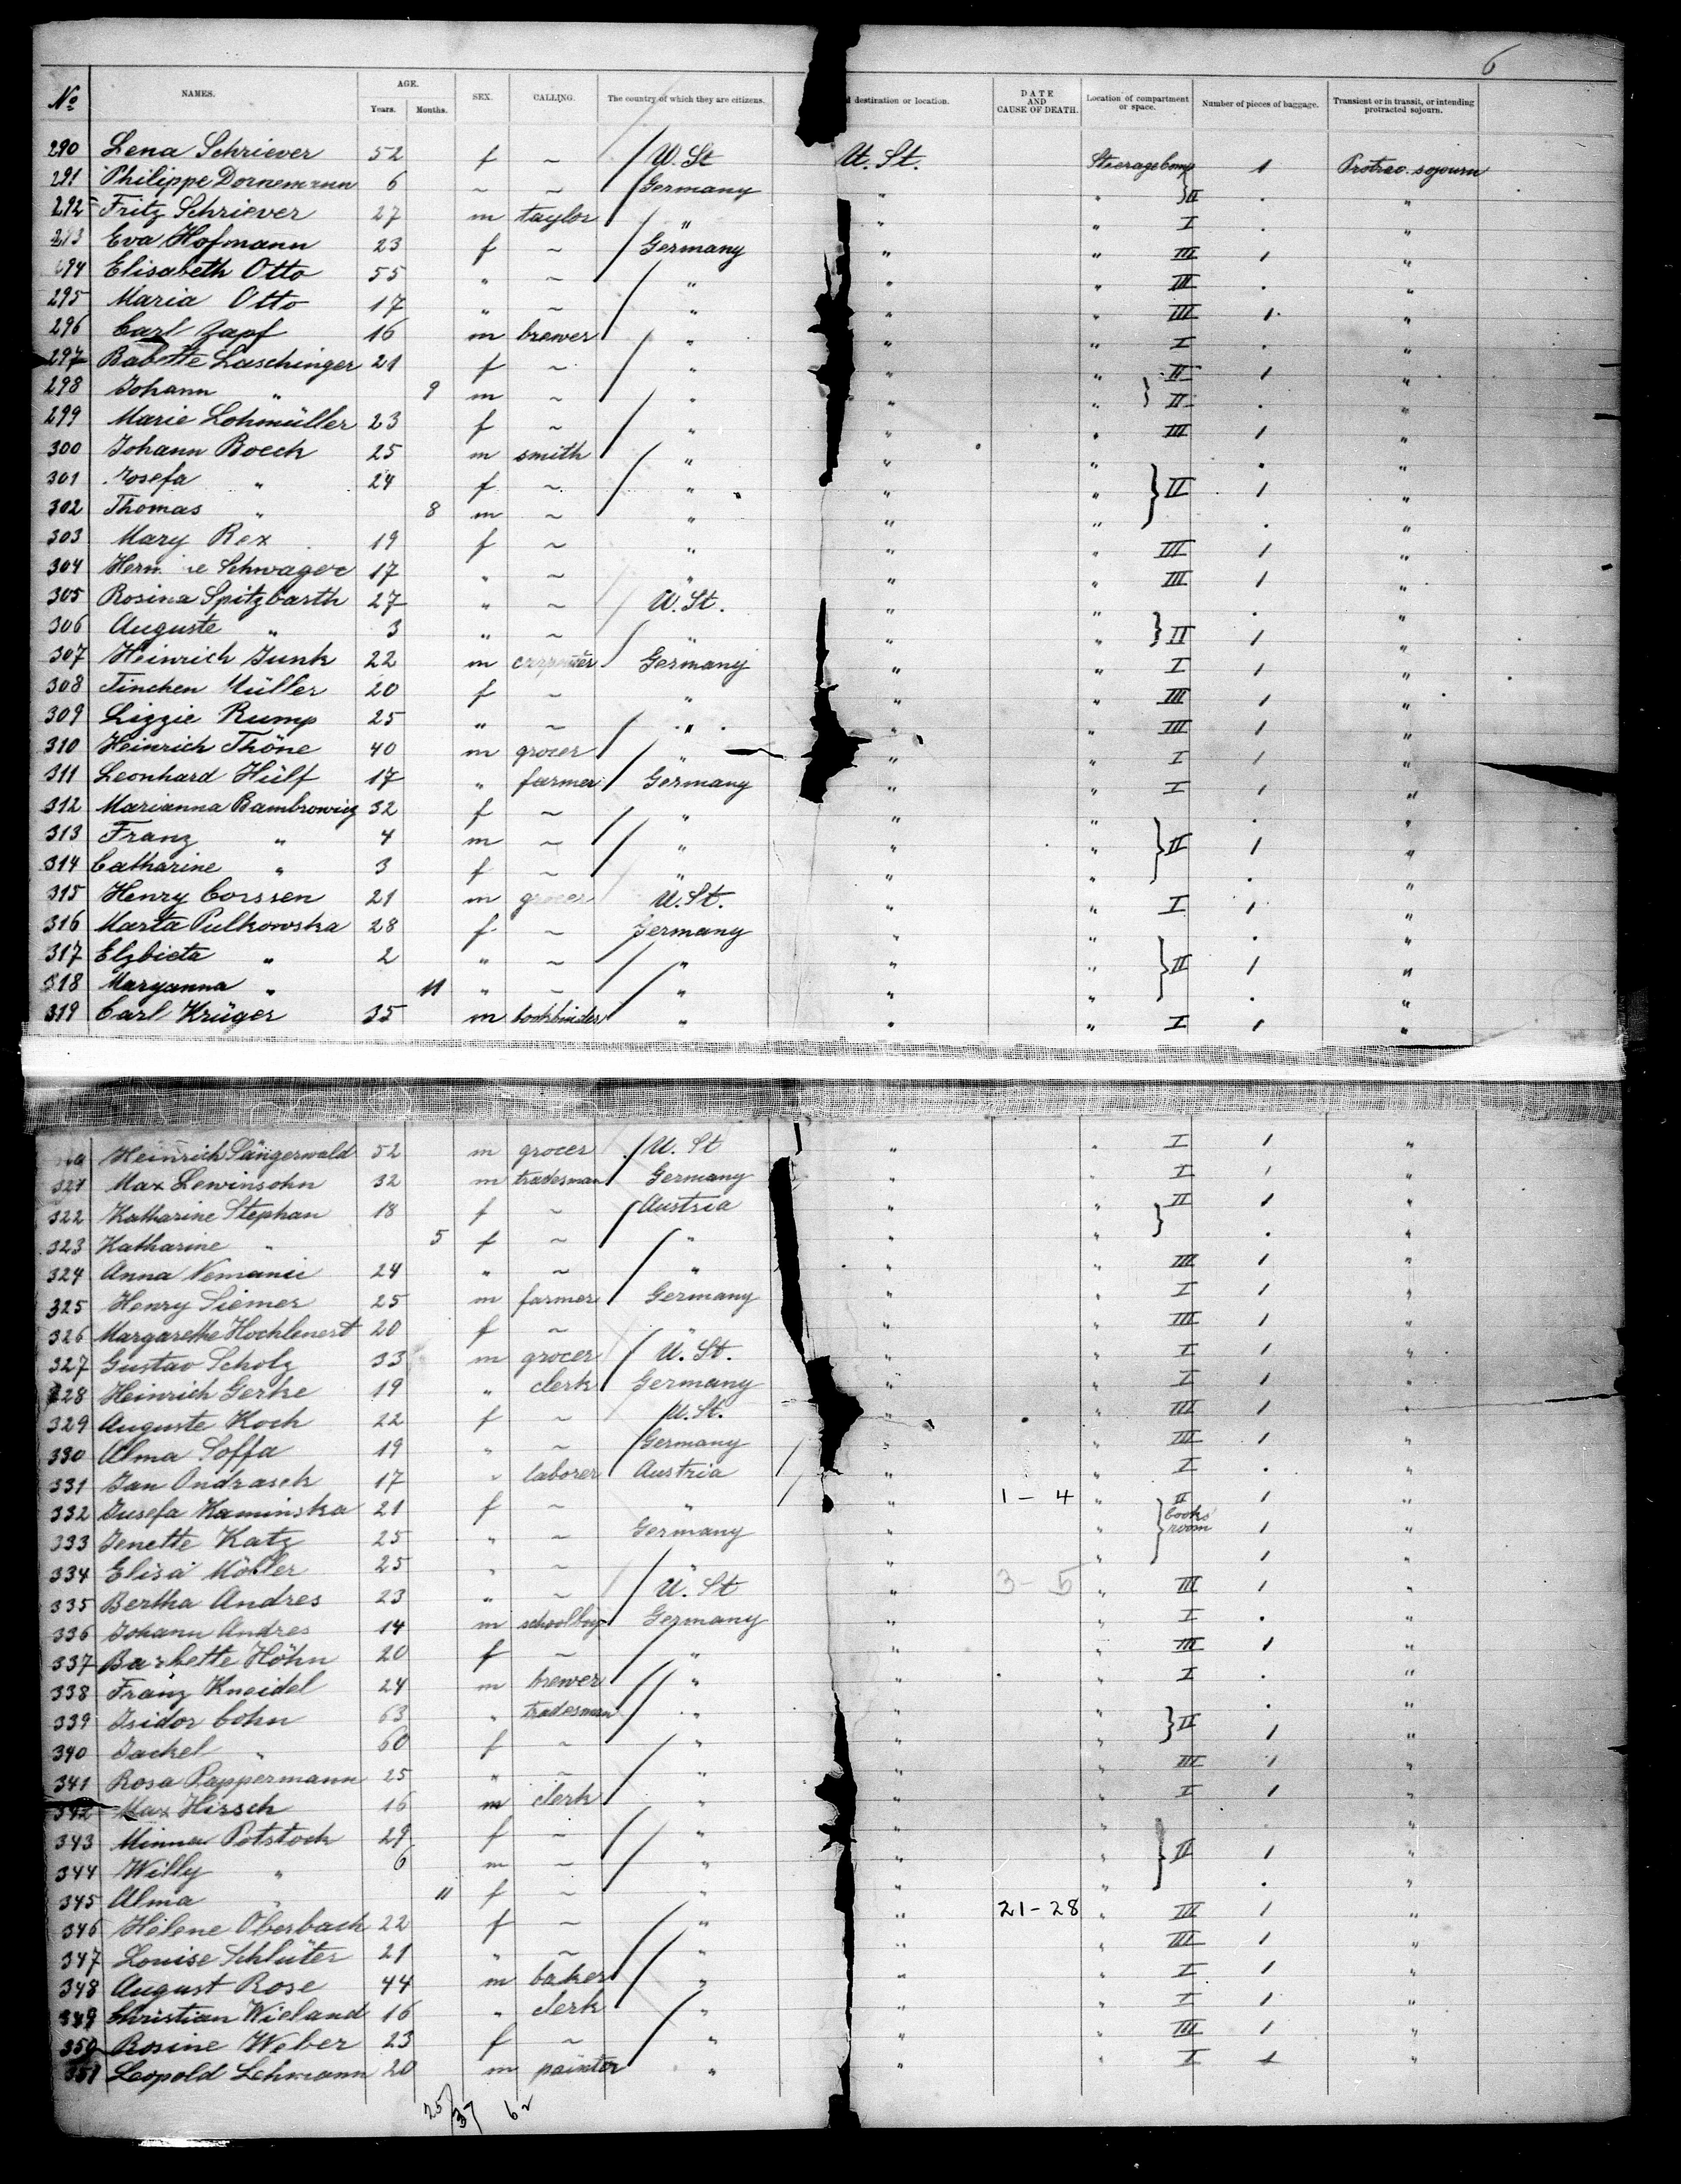 6
No NAMES. AGE. Years. Months. SEX. CALLING. The country of which they are citizens. destination or location. DATE AND CAUSE OF DEATH. Location of compartment or space. Number of pieces of baggage. Transient or in transit, or intending protracted sojourn.
290 Lena Schriever 52 f ~ U. St U. St. Steerage Comp 1 Protrac. sojourn
291 Philippe Dornemann 6 ~ ~ Germany " " } II . "
292 Fritz Schriever 27 m taylor " " " I . "
293 Eva Hofmann 23 f ~ Germany " " III 1 "
294 Elisabeth Otto 55 " ~ " " " III . "
295 Maria Otto 17 " ~ " " " III 1 "
296 Carl Zapf 16 m brewer " " " I . "
297 Babette Laschinger 21 f ~ " " " II 1 "
298 Johann " 9 m ~ " " " } II . "
299 Marie Lohmüller 23 f ~ " " " III 1 "
300 Johann Boeck 25 m smith " " " . "
301 Josefa " 24 f ~ " " " } II 1 "
302 Thomas " 8 m ~ " " " . "
303 Mary Rex 19 f ~ " " " III 1 "
304 Schwager 17 " ~ " " " III 1 "
305 Rosina Spitzbarth 27 " ~ U. St. " " . "
306 Auguste " 3 " ~ " " " } II 1 "
307 Heinrich Junk 22 m carpenter Germany " " I 1 "
308 Tinchen Müller 20 f ~ " " " III 1 "
309 Lizzie Rump 25 " ~ " " " III 1 "
310 Heinrich Thöne 40 m grocer " " " I 1 "
311 Leonhard Hülf 17 " farmer Germany " " I 1 "
312 Marianna Bambrowicz 32 f ~ " " " . "
313 Franz " 4 m ~ " " " } II 1 "
314 Catharine " 3 f ~ " " " . "
315 Henry Corssen 21 m grocer U. St. " " I 1 "
316 Marta Pulkowska 28 f ~ Germany " " . "
317 Elzbieta " 2 " ~ " " " } II 1 "
318 Maryanna " 11 " ~ " " " . "
319 Carl Krüger 35 m bookbinder " " " I 1 "
Heinrich Sängerwald 52 m grocer U. St " " I 1 "
321 Max Lewinsohn 32 m tradesman Germany " " I 1 "
322 Katharine Stephan 18 f ~ Austria " " II 1 "
323 Katharine " 5 f ~ " " " } . "
324 Anna 24 " ~ " " " III 1 "
325 Henry Siemer 25 m farmer Germany " " I 1 "
326 Margarethe Hochlenert 20 f ~ " " " III 1 "
327 Gustav Scholz 33 m grocer U. St. " " I 1 "
328 Heinrich Gerke 19 " clerk Germany " " I 1 "
329 Auguste Koch 22 f ~ U. St. " " III 1 "
330 Alma Soffa 19 " ~ Germany " " III 1 "
331 Jan Ondrasch 17 " laborer Austria " " I . "
332 Jusefa Kaminska 21 f ~ " " 1-4 " II 1 "
333 Jenette Katz 25 " ~ Germany " " } cooks' room 1 "
334 Elisa Möller 25 " ~ " " " 1 "
335 Bertha Andres 23 " ~ U. St " 3-5 " III 1 "
336 Johann Andres 14 m schoolboy Germany " " I . "
337 Barbette Höhn 20 f ~ " " " III 1 "
338 Franz Kneidel 24 m brewer " " " I . "
339 Isidor Cohn 63 " tradesman " " " . "
340 Jackel " 60 f ~ " " " } II 1 "
341 Rosa Pappermann 25 " ~ " " " III 1 "
342 Max Hirsch 16 m clerk " " " I 1 "
343 Minna Potstock 29 f ~ " " " . "
344 Willy " 6 m ~ " " " } II 1 "
345 Alma " 11 f ~ " " " . "
346 Helene Oberbach 22 f ~ " " 21-28 " III 1 "
347 Louise Schlüter 21 " ~ " " " III 1 "
348 August Rose 44 m baker " " " I 1 "
349 Christian Wieland 16 " clerk " " " I 1 "
350 Rosine Weber 23 f ~ " " " III 1 "
351 Leopold Lehmann 20 m painter " " " I 1 "
25/37 62